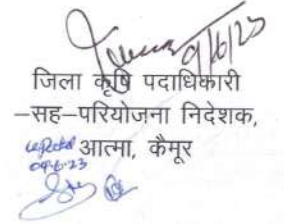 9/6/23
जिला कृषि पदाधिकारी
-सह-परियोजना निदेशक,
आत्मा, कैमूर
09.6.23